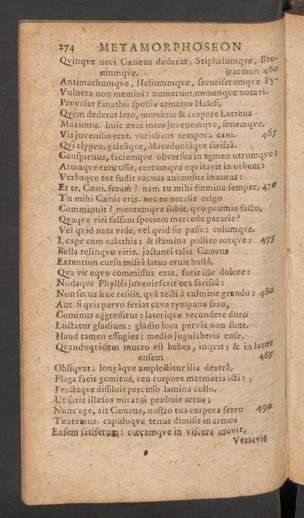 274 METAMORPHOSEON
Qvinqve neci Cæneus dederat, Stiphelumqve, Bro-
mumqve. (racmon 460
Antimachumqve, Helimumqve, securiferumqve Py-
Vulnera non memini: numerum, nomenqve notavi.
Provolat Emathii spoliis armatus Halesi,
Qvem dederat leto, membris & corpore Latreus
Maximus. huic ætas inter juvenemqve, senemqve.
Vis juvenilis erat. variabant tempora cani. 465
Qui clypeo, galeâqve, Macedoniâqve sarissâ.
Conspicuus, faciemqve obversus in agmen utrumqve:
Armaqve concussit, certumqve eqvitavit in orbem:
Verbaqve tot fudit vacuas animosus in auras:
Et te, Cæni, feram? nam tu mihi fœmina semper, 470
Tu mihi Cænis eris. nec te natalis origo
Comminuit? mentemqve subit, qvo præmia facto,
Qvaqve viri falsam speciem mercede pararis?
Vel qvid nata vide, vel qvid sis passa: columqve.
I, cape cum calathis; & stamina pollice torqve: 475
Bella relinqvo viris. jactanti talia Cæneus
Extentum cursu missâ latus eruit hastâ,
Qva vir eqvo commissus erat. furit ille dolore:
Nudaqve Phylleï juvenis ferit ora sarissâ:
Non secus hæc resilit, qvà tecti à culmine grando: 480
Aut si qvis parvo feriat cava tympana saxo,
Cominus aggreditur: lateriqve recondere duro
Luctatur gladium: gladio loca pervia non sunt.
Haud tamen effugies: medio jugulaberis ense,
Qvandoqvidem mucro est hebes, inqvit; & in latus
ensem 485
Obliqvat; longâqve amplectitur ilia dextrâ,
Plaga facit gemitus, ceu corpore marmoris icti:
Fractaqve dissiluit percusso lamina collo.
Ut satis illæsos miranti præbuit artus;
Nunc age, ait Cæneus, nostro tua corpora ferro 490
Tentemus. capuloqve tenus dimisit in armos
Ensem fatiferum: cœcamqve in viscera movit,